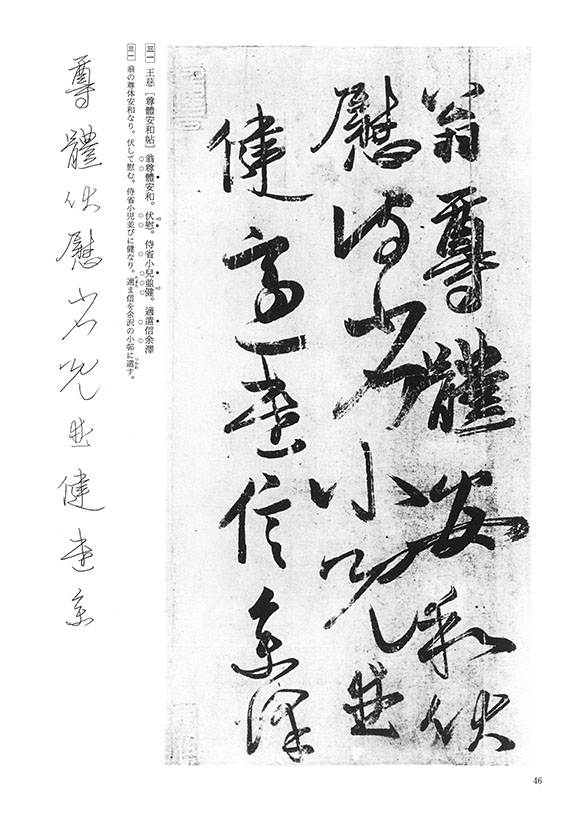 翁尊體安和伏
慰侍省小兒並
健適遣信余澤
三一 王慈［尊體安和帖］翁尊體安和。伏慰。侍省小兒並健。適遣信余澤
三一 翁の尊体安和なり。伏して慰む。侍省小児並びに健なり。適ま信を余沢の小邨に遣す。
尊體伏慰省兒並健遣余
46